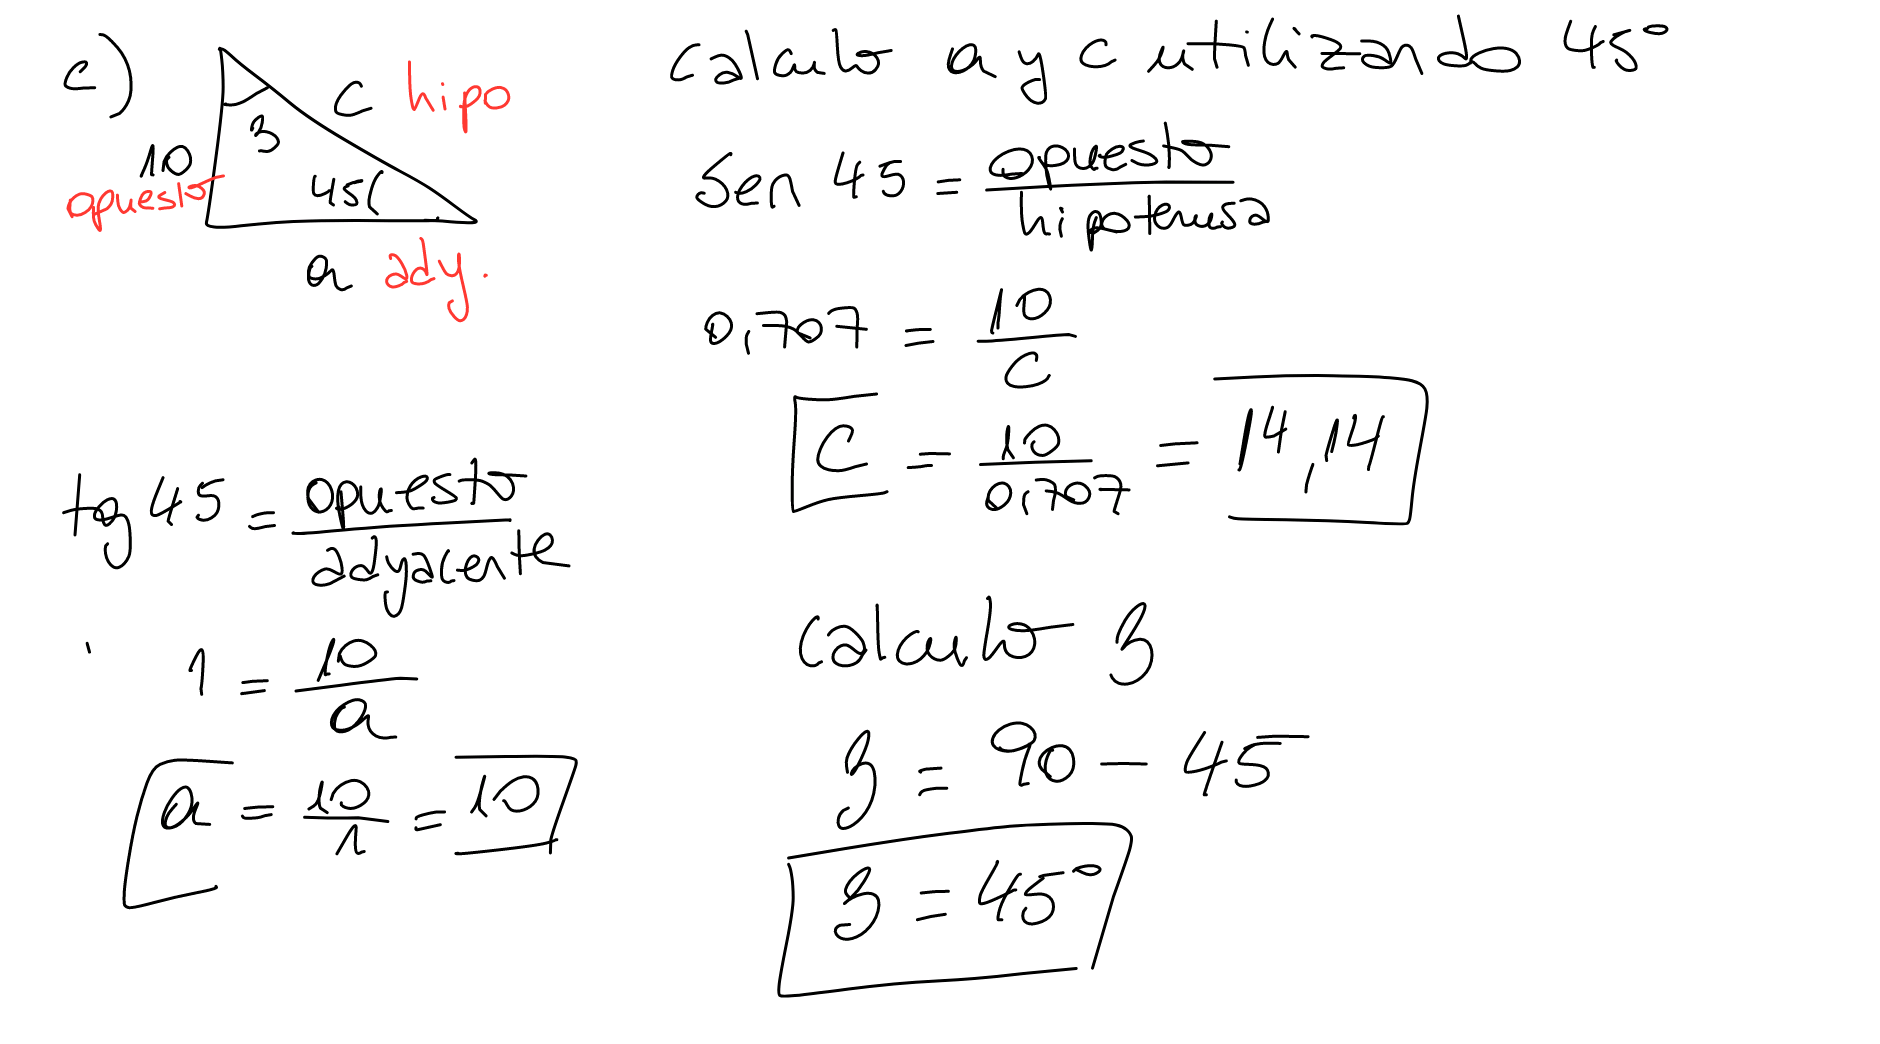 c)
c hipo
10
3
opuesto
45(
a ady.
calculo a y c utilizando 45°
Sen 45 = opuesto
hipotenusa
0,707 = 10
c
C = 10 = 14,14
0,707
tg 45 = opuesto
adyacente
1 = 10
a
a = 10 = 10
1
calculo 3
3 = 90 - 45
3 = 45°